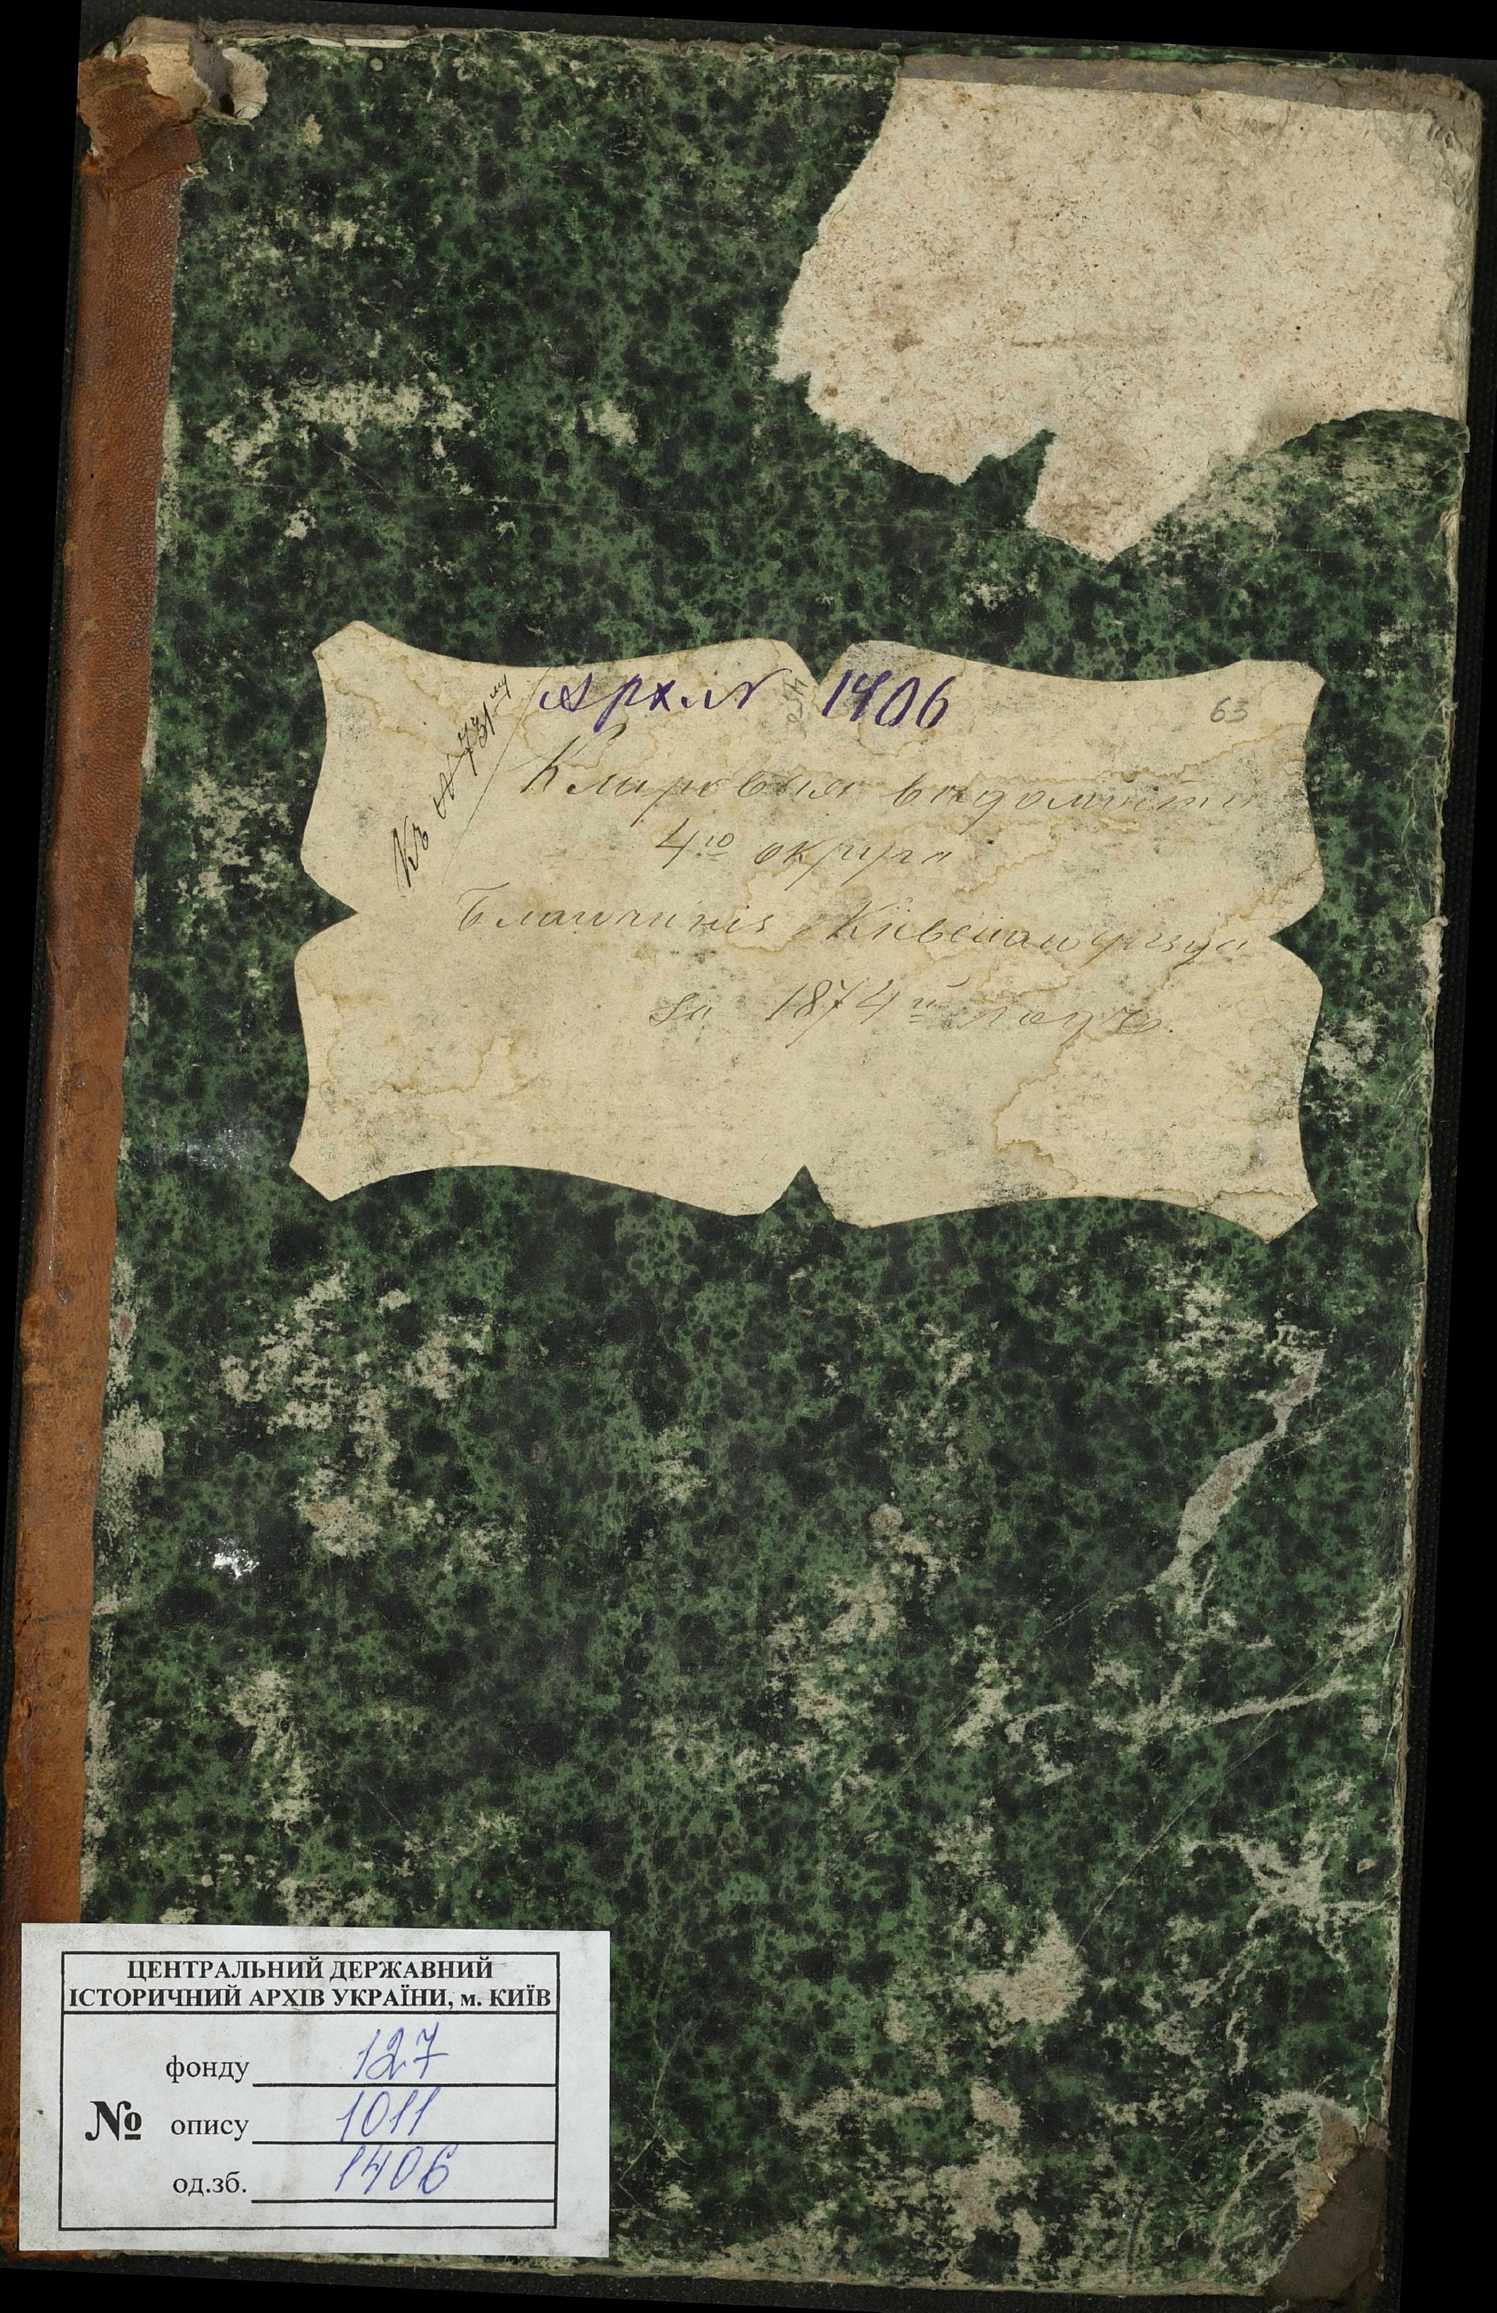 Арх. № 1406
63
Къ № 731му
Клировыя вѣдомости
4го округа
Благочинія Кіевскаго уѣзда
За 1874й годъ.
ЦЕНТРАЛЬНИЙ ДЕРЖАВНИЙ
ІСТОРИЧНИЙ АРХІВ УКРАЇНИ, м. КИЇВ
фонду 127
№ опису 1011
од.зб. 1406